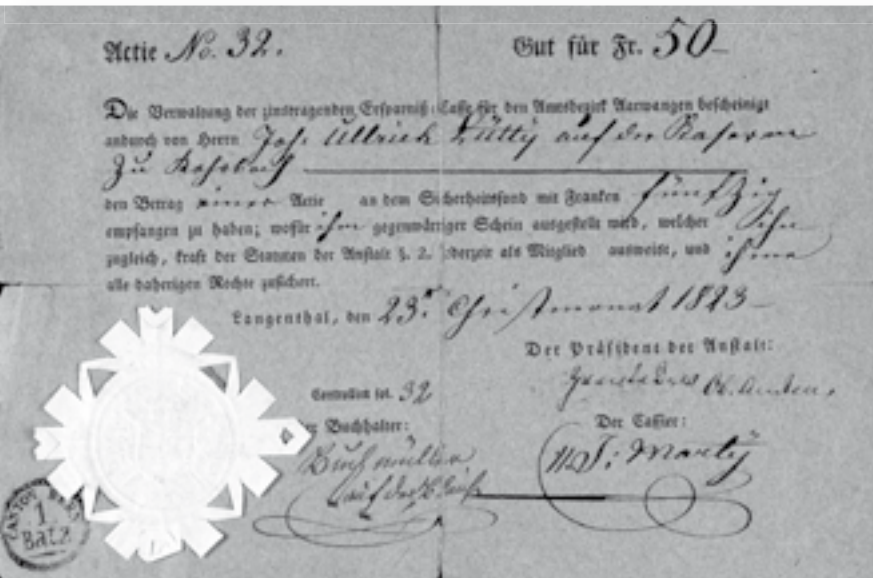 Actie No. 32.
Gut für Fr. 50
Die Verwaltung der zinstragenden Ersparniß-Casse für den Amtsbezirk Aarwangen bescheinigt
andurch von Herrn Joh. Ullrich Lütty auf der Kaserne
zu Rohrbach
den Betrag einer Actie an dem Sicherheitsfond mit Franken fünfzig
empfangen zu haben; wofür ihm gegenwärtiger Schein ausgestellt wird, welcher ihn
zugleich, kraft der Statuten der Anstalt §. 2. jederzeit als Mitglied ausweist, und ihme
alle daherigen Rechte zusichert.
Langenthal, den 23. Christmonat 1823
Der Präsident der Anstalt:
Controllen fol. 32
Buchhalter:
Der Cassier:
Buchmüller
J: Marty
auf der
CANTON BERN
1
BATZ